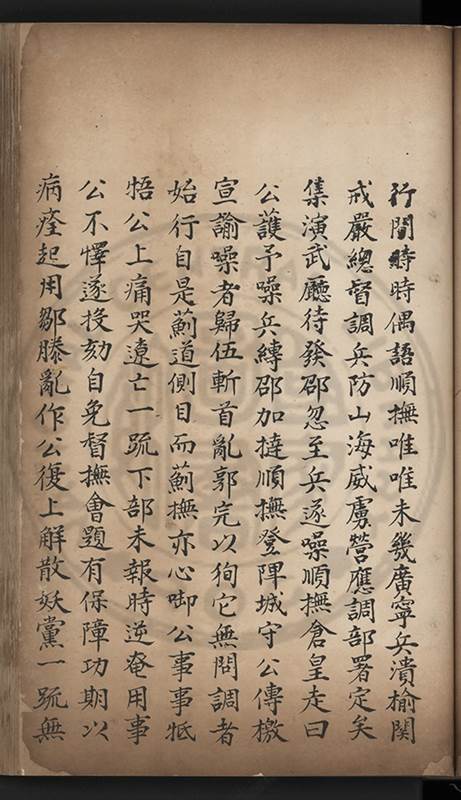 行間時時偶語順撫唯唯未幾廣寧兵潰榆関
戒嚴總督調兵防山海威虜營應調部署定矣
集演武廳待發邵忽至兵遂噪順撫倉皇走曰
公護予噪兵縛邵加撻順撫登陴城守公傳檄
宣諭噪者歸伍斬首亂郭完以狥它無問調者
始行自是薊道側目而薊撫亦心啣公事事牴
牾公上痛哭遼亡一疏下部未報時逆奄用事
公不懌遂投劾自免督撫會題有保障功期以
病痊起用鄒滕亂作公復上解散妖黨一疏無